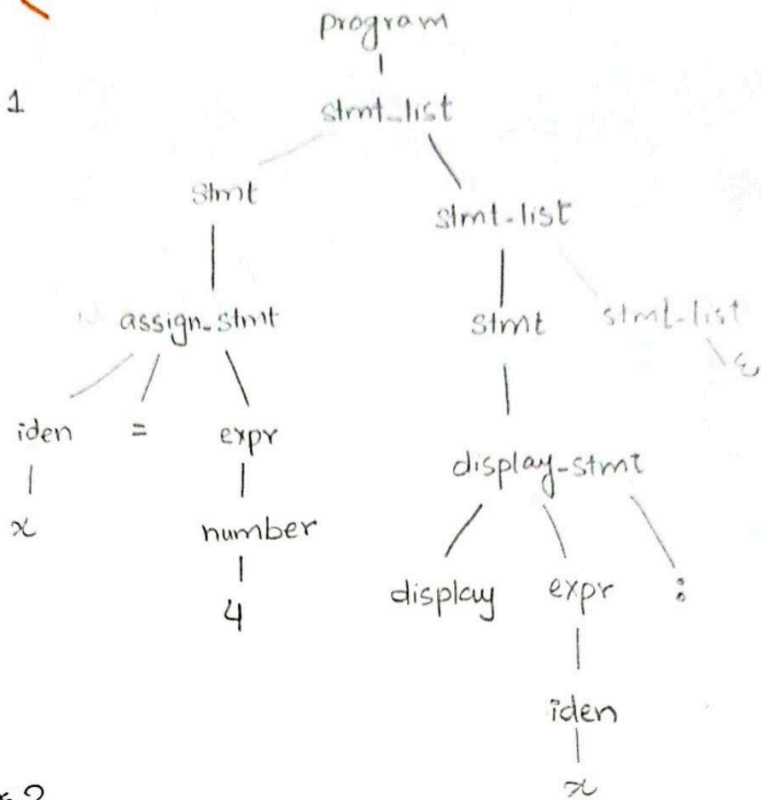 program
1
stmt_list
stmt
stmt-list
assign-stmt
stmt
stmt-list
ε
iden = expr
display-stmt
x
number
4
display expr ;
iden
x
2